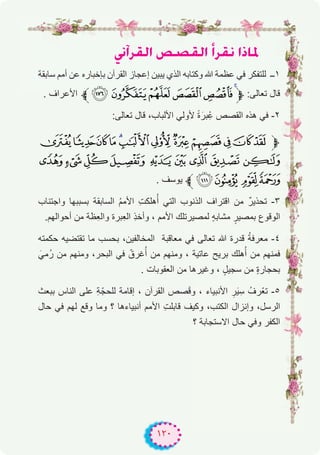 لماذا نقرأ القصص القرآني
١ــ للتفكر في عظمة الله وكتابه الذي يبين إعجاز القرآن بإخباره عن أمم سابقة
قال تعالى: ﴿ فَاقْصُصِ الْقَصَصَ لَعَلَّهُمْ يَتَفَكَّرُونَ ١٧٦ ﴾ الأعراف .
٢- في هذه القصص عِبْرَةٌ لأولي الألباب، قال تعالى:
﴿ لَقَدْ كَانَ فِي قَصَصِهِمْ عِبْرَةٌ لِّأُولِي الْأَلْبَابِ ۗ مَا كَانَ حَدِيثًا يُفْتَرَىٰ
وَلَٰكِن تَصْدِيقَ الَّذِي بَيْنَ يَدَيْهِ وَتَفْصِيلَ كُلِّ شَيْءٍ وَهُدًى
وَرَحْمَةً لِّقَوْمٍ يُؤْمِنُونَ ١١١ ﴾ يوسف .
٣- تحذيرٌ من اقتراف الذنوب التي أُهلكتِ الأممُ السابقة بسببها واجتناب
الوقوع بمصيرٍ مشابهٍ لمصيرتلك الأمم ، وأخذِ العِبرة والعِظة من أحوالهم.
٤- معرفةُ قدرة الله تعالى في معاقبة المخالفين، بحسب ما تقتضيه حكمته
فمنهم من أُهلك بريح عاتية ، ومنهم من أُغرقَ في البحر، ومنهم من رُميَ
بحجارةٍ من سجيلٍ ، وغيرها من العقوبات .
٥- تعْرفُ سِيَرِ الأنبياء ، وقَصص القرآن ، إقامة للحجّة على الناس ببعث
الرسل، وإنزال الكتب، وكيف قابلتِ الأمم أنبياءها ؟ وما وقع لهم في حال
الكفر وفي حال الاستجابة ؟
١٢٠